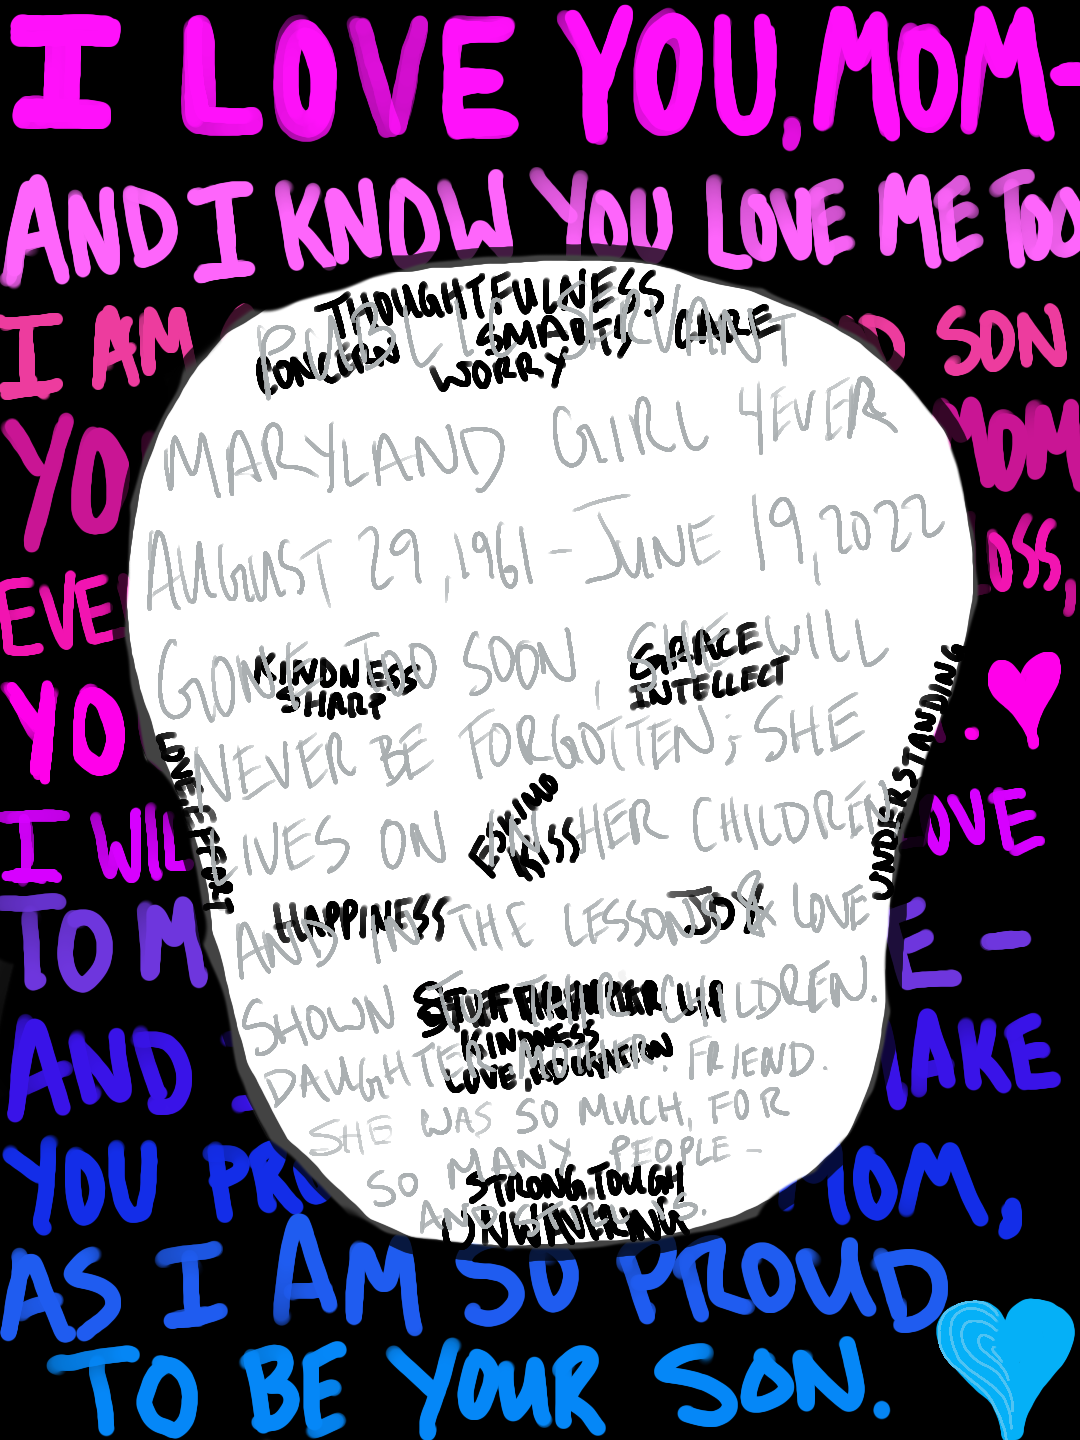 I LOVE YOU, MOM-
AND I KNOW YOU LOVE ME TOO
I AM
SON
YO
MOM
EVE
OSS,
YO
.
I WIL
OVE
TO M
E -
AND
MAKE
YOU PRO
MOM,
AS I AM SO PROUD
TO BE YOUR SON.
THOUGHTFULNESS
CONCERN SMARTS CARE
WORRY
PUBLIC SERVANT
MARYLAND GIRL 4EVER
AUGUST 29, 1961 - JUNE 19, 2022
GONE TOO SOON, SHE WILL
NEVER BE FORGOTTEN; SHE
LIVES ON IN HER CHILDREN
AND IN THE LESSONS & LOVE
SHOWN TO THEIR CHILDREN.
DAUGHTER. MOTHER. FRIEND.
SHE WAS SO MUCH, FOR
SO MANY PEOPLE -
AND STILL IS.
KINDNESS
SHARP
GRACE
INTELLECT
LOVE, EFFORT
UNDERSTANDING
ESKIMO
KISS
HAPPINESS
JOY
STIFF UPPER LIP
KINDNESS
LOVE,
STRONG, TOUGH
UNWAVERING